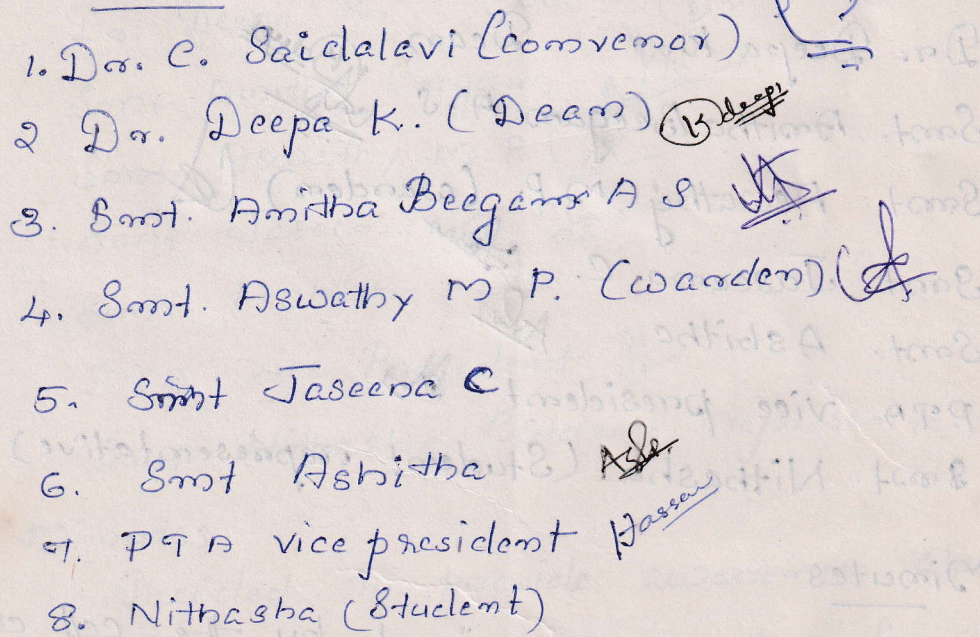 1. Dr. C. Saidalavi (convenor)
2 Dr. Deepa K. (Dean) K deepa
3. Smt. Anitha Beegam A S
4. Smt. Aswathy M P. (warden)
5. Smt Jaseena C
6. Smt Ashitha
7. PTA vice president Hassan
8. Nithasha (Student)